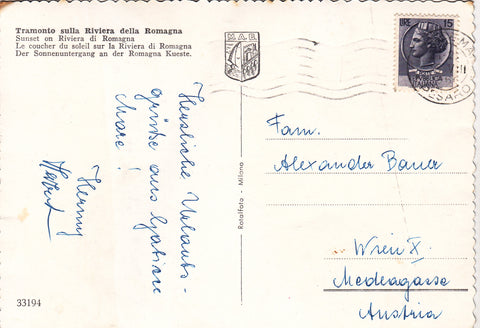 Tramonto sulla Riviera della Romagna
Sunset on Riviera di Romagna
Le coucher du soleil sur la Riviera di Romagna
Der Sonnenuntergang an der Romagna Kueste.
M.A.B.
PESARO
Herzliche Urlaubs-
grüsse aus Gabicce
Mare!
Henny
Herbert
Rotalfoto - Milano
Fam.
Alexander Bauer
Wien X.
Austria
33194